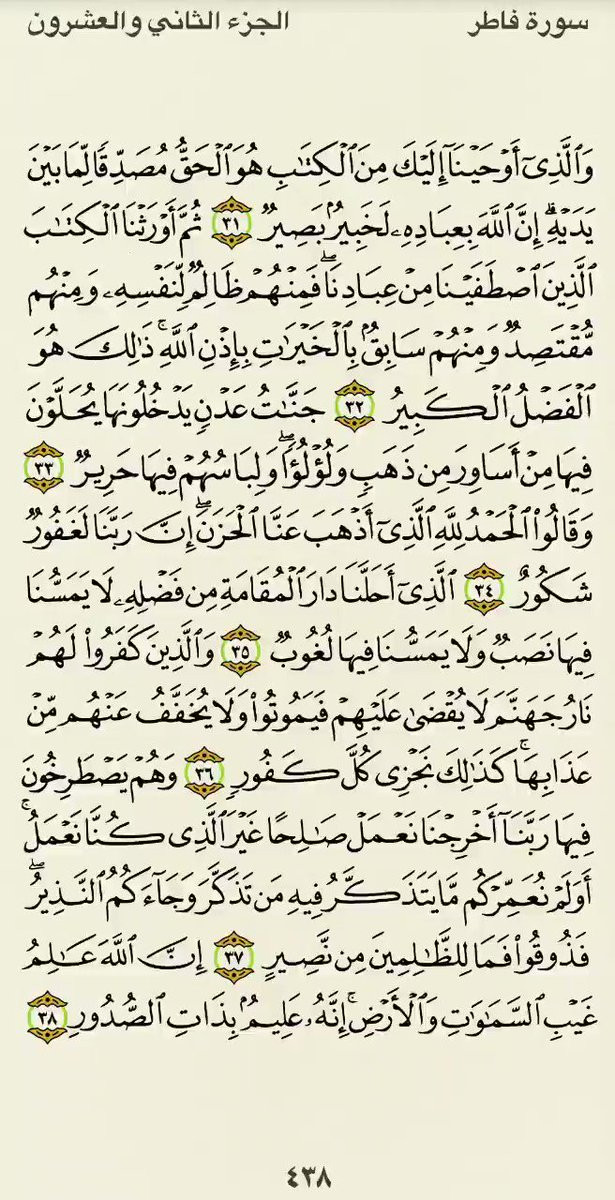 سورة فاطر الجزء الثاني والعشرون
وَٱلَّذِىٓ أَوۡحَيۡنَآ إِلَيۡكَ مِنَ ٱلۡكِتَٰبِ هُوَ ٱلۡحَقُّ مُصَدِّقٗا لِّمَا بَيۡنَ
يَدَيۡهِۗ إِنَّ ٱللَّهَ بِعِبَادِهِۦ لَخَبِيرُۢ بَصِيرٞ ٣١ ثُمَّ أَوۡرَثۡنَا ٱلۡكِتَٰبَ
ٱلَّذِينَ ٱصۡطَفَيۡنَا مِنۡ عِبَادِنَاۖ فَمِنۡهُمۡ ظَالِمٞ لِّنَفۡسِهِۦ وَمِنۡهُم
مُّقۡتَصِدٞ وَمِنۡهُمۡ سَابِقُۢ بِٱلۡخَيۡرَٰتِ بِإِذۡنِ ٱللَّهِۚ ذَٰلِكَ هُوَ
ٱلۡفَضۡلُ ٱلۡكَبِيرُ ٣٢ جَنَّٰتُ عَدۡنٖ يَدۡخُلُونَهَا يُحَلَّوۡنَ
فِيهَا مِنۡ أَسَاوِرَ مِن ذَهَبٖ وَلُؤۡلُؤٗاۖ وَلِبَاسُهُمۡ فِيهَا حَرِيرٞ ٣٣
وَقَالُواْ ٱلۡحَمۡدُ لِلَّهِ ٱلَّذِىٓ أَذۡهَبَ عَنَّا ٱلۡحَزَنَۖ إِنَّ رَبَّنَا لَغَفُورٞ
شَكُورٌ ٣٤ ٱلَّذِىٓ أَحَلَّنَا دَارَ ٱلۡمُقَامَةِ مِن فَضۡلِهِۦ لَا يَمَسُّنَا
فِيهَا نَصَبٞ وَلَا يَمَسُّنَا فِيهَا لُغُوبٞ ٣٥ وَٱلَّذِينَ كَفَرُواْ لَهُمۡ
نَارُ جَهَنَّمَ لَا يُقۡضَىٰ عَلَيۡهِمۡ فَيَمُوتُواْ وَلَا يُخَفَّفُ عَنۡهُم مِّنۡ
عَذَابِهَاۚ كَذَٰلِكَ نَجۡزِى كُلَّ كَفُورٖ ٣٦ وَهُمۡ يَصۡطَرِخُونَ
فِيهَا رَبَّنَآ أَخۡرِجۡنَا نَعۡمَلۡ صَٰلِحًا غَيۡرَ ٱلَّذِى كُنَّا نَعۡمَلُۚ
أَوَلَمۡ نُعَمِّرۡكُم مَّا يَتَذَكَّرُ فِيهِ مَن تَذَكَّرَ وَجَآءَكُمُ ٱلنَّذِيرُۖ
فَذُوقُواْ فَمَا لِلظَّٰلِمِينَ مِن نَّصِيرٍ ٣٧ إِنَّ ٱللَّهَ عَٰلِمُ
غَيۡبِ ٱلسَّمَٰوَٰتِ وَٱلۡأَرۡضِۚ إِنَّهُۥ عَلِيمُۢ بِذَاتِ ٱلصُّدُورِ ٣٨
٤٣٨